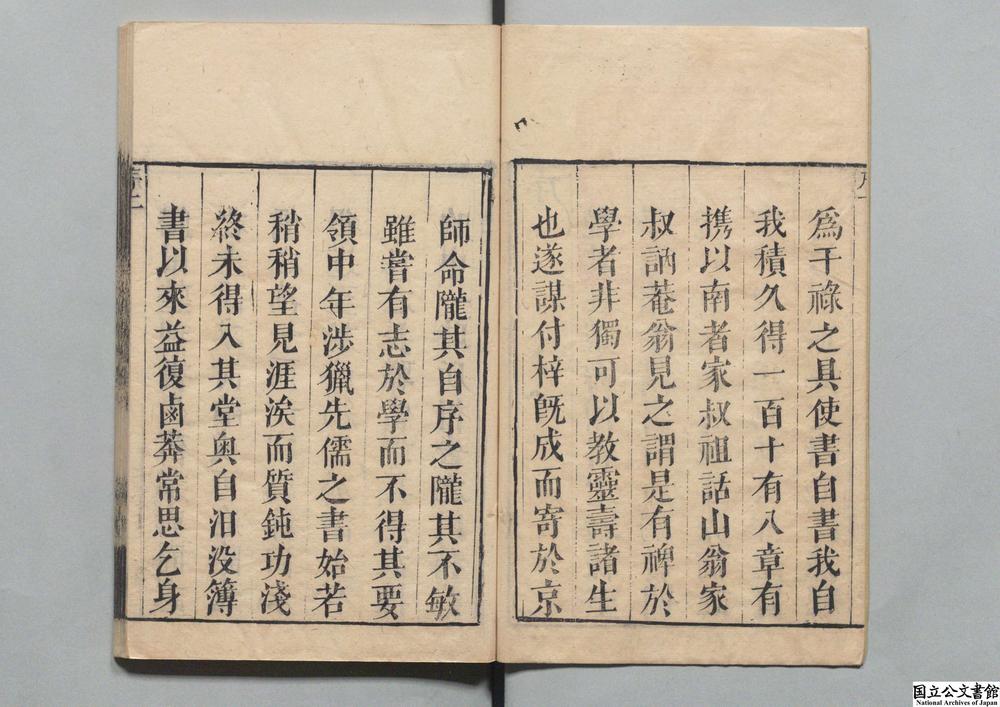 爲干祿之具使書自書我自
我積久得一百十有八章有
携以南者家叔祖話山翁家
叔訥菴翁見之謂是有裨於
學者非獨可以教靈壽諸生
也遂謀付梓旣成而寄於京
師命隴其自序之隴其不敏
雖嘗有志於學而不得其要
領中年涉獵先儒之書始若
稍稍望見涯涘而質鈍功淺
終未得入其堂奥自汨没簿
書以來益復鹵莽常思乞身
序二
国立公文書館
National Archives of Japan